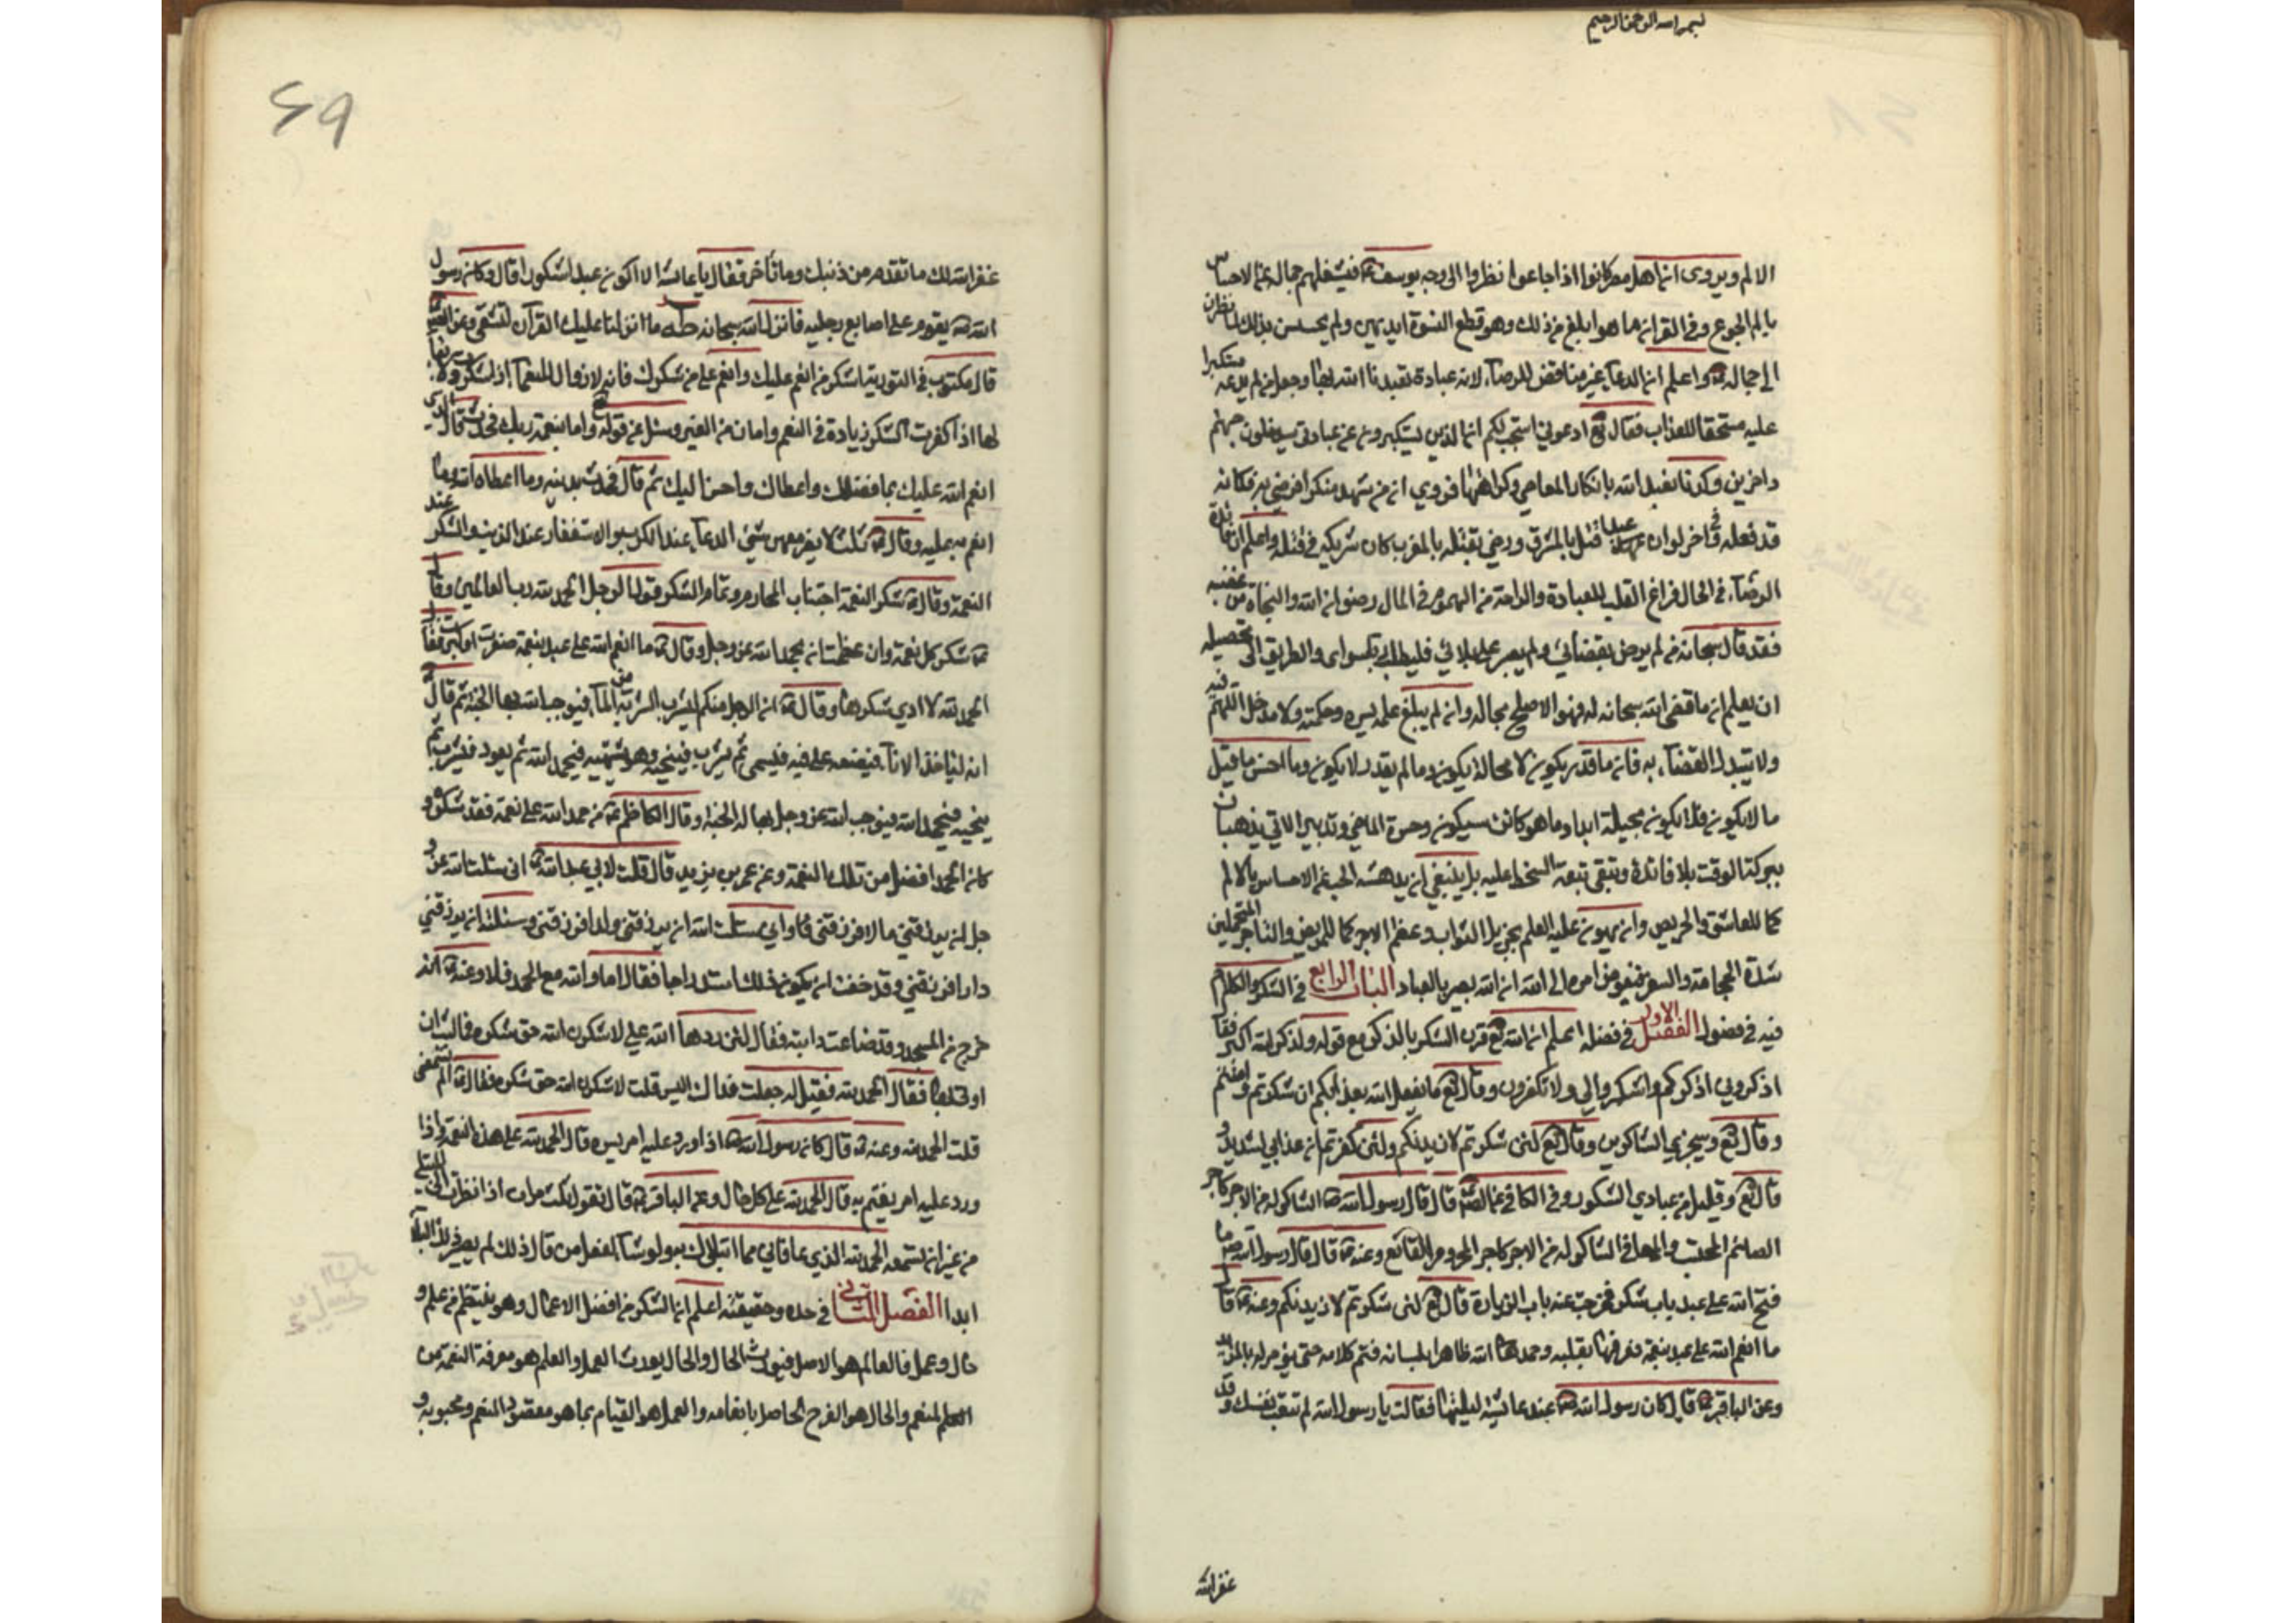 بسم الله الرحمن الرحيم
الالم ويروى ان اهل مصر كانوا اذا جاعوا نظروا الى وجه يوسف ع فيشغلهم جماله عن الاحساس
بالم الجوع وفي القران ما هو ابلغ من ذلك وهو قطع النسوة ايديهن ولم يحسسن بذلك لما نظرن
الى جماله ع واعلم ان الدعاء غير مناقض للرضاء لانه عبادة تعبدنا الله بها وجعل من لم يدعه مستكبرا
عليه مستحقا للعذاب فقال تع ادعوني استجب لكم ان الذين يستكبرون عن عبادتي سيدخلون جهنم
داخرين وكذا تعبد الله بانكار المعاصي وكراهتها فروي ان من شهد منكرا فرضي به فكانه
قد فعله وفي اخر لو ان عبدا قتل بالمشرق ورضي بقتله بالمغرب كان شريكه في قتله واعلم ان فائدة
الرضاء في الحال فراغ القلب للعبادة والراحة من الهموم وفي المال رضوان الله والنجاة من غضبه
فقد قال سبحانه من لم يرض بقضائي ولم يصبر على بلائي فليطلب ربا سواي والطريق الى تحصيله
ان يعلم ان ما قضى الله سبحانه له فهو الاصلح بحاله وان لم يبلغ علمه بسره وحكمته ولا مدخل للهم فيه
ولا يتبدل القضاء به فان ما قدر يكون لا محالة يكون وما لم يقدر لا يكون وما احسن ما قيل
ما لا يكون فلا يكون بحيلة ابدا وما هو كائن سيكون وحسرة الماضي وتدبير الاتي يذهبان
ببركة الوقت بلا فائدة وتبقى تبعة السخط عليه بل ينبغي ان يدهشه الحب عن الاحساس بالالم
كما للعاشق والحريص وان يهون عليه العلم بجزيل الثواب وعظم الاجر كما للمريض والتاجر المتحملين
شدة الحجامة والسفر فيفوض امره الى الله ان الله بصير بالعباد الباب الرابع في الشكر والكلام
فيه في فصول الفصل الاول في فضله اعلم ان الله تع قرن الشكر بالذكر مع قوله ولذكر الله اكبر فقا
اذكروني اذكركم واشكروا لي ولا تكفرون وقال تع ما يفعل الله بعذابكم ان شكرتم وامنتم
وقال تع وسيجزي الشاكرين وقال تع لئن شكرتم لازيدنكم ولئن كفرتم ان عذابي لشديد و
قال تع وقليل من عبادي الشكور وفي الكافي عن الص قال قال رسول الله ص الشاكر له من الاجر كاجر
الصائم المحتسب والمعافى الشاكر له من الاجر كاجر المحروم القانع وعنه ع قال قال رسول الله ص ما
فتح الله على عبد باب شكر فخزن عنه باب الزيادة قال تع لئن شكرتم لازيدنكم وعنه ع قال
ما انعم الله على عبد بنعمة فعرفها بقلبه وحمد الله ظاهرا بلسانه فتم كلامه حتى يؤمر له بالمزيد
وعن الباقر ع قال كان رسول الله ص عند عائشة ليلتها فقالت يا رسول الله لم تتعب نفسك وقد
غفر الله
49
غفر الله لك ما تقدم من ذنبك وما تأخر فقال يا عائشة الا اكون عبدا شكورا قال وكان رسول
الله ص يقوم على اصابع رجليه فانزل الله سبحانه طه ما انزلنا عليك القرآن لتشقى وعن الص
قال مكتوب في التورية اشكر من انعم عليك وانعم على من شكرك فانه لا زوال للنعماء اذا شكرت ولا بقاء
لها اذا كفرت الشكر زيادة في النعم وامان من الغير وسئل عن قوله تع واما بنعمة ربك فحدث قال الذي
انعم الله عليك بما فضلك واعطاك واحسن اليك ثم قال فحدث بدينه وما اعطاه الله وما
انعم به عليه وقال ع ثلث لا يضر معهن شئ الدعاء عند الكرب والاستغفار عند الذنب والشكر عند
النعمة وقال ع شكر النعمة اجتناب المحارم وتمام الشكر قول الرجل الحمد لله رب العالمين وقال
ع شكر كل نعمة وان عظمت ان يحمد الله عز وجل وقال ع ما انعم الله على عبد بنعمة صغرت او كبرت فقال
الحمد لله الا ادى شكرها وقال ع ان الرجل منكم ليشرب الشربة من الماء فيوجب الله بها الجنة ثم قال
انه لياخذ الاناء فيضعه على فيه فيسمي ثم يشرب فينحيه وهو يشتهيه فيحمد الله ثم يعود فيشرب ثم
ينحيه فيحمد الله فيوجب الله عز وجل بها له الجنة وقال الكاظم ع من حمد الله على نعمة فقد شكره و
كان الحمد افضل من تلك النعمة وعن عمر بن يزيد قال قلت لابي عبد الله ع اني سئلت الله عز و
جل ان يرزقني مالا فرزقني واني سئلت الله ان يرزقني ولدا فرزقني وسئلته ان يرزقني
دارا فرزقني وقد خفت ان يكون ذلك استدراجا فقال اما والله مع الحمد فلا وعنه ع انه
خرج من المسجد وقد ضاعت دابته فقال لئن ردها الله علي لاشكرن الله حق شكره فما لبث ان
اوتي بها فقال الحمد لله فقيل له جعلت فداك اليس قلت لاشكرن الله حق شكره فقال ع الم تسمعني
قلت الحمد لله وعنه ع قال كان رسول الله ص اذا ورد عليه امر يسره قال الحمد لله على هذه النعمة واذا
ورد عليه امر يغتم به قال الحمد لله على كل حال وعن الباقر ع قال تقول ثلث مرات اذا نظرت الى المبتلى
من غير ان تسمعه الحمد لله الذي عافاني مما ابتلاك به ولو شاء لفعل من قال ذلك لم يصبه ذلك البلاء
ابدا الفصل الثاني في حده وحقيقته اعلم ان الشكر من افضل الاعمال وهو ينتظم من علم و
حال وعمل فالعلم هو الاصل فيورث الحال والحال يورث العمل والعلم هو معرفة النعمة من
المنعم والحال هو الفرح الحاصل بانعامه والعمل هو القيام بما هو مقصود المنعم ومحبوبه و